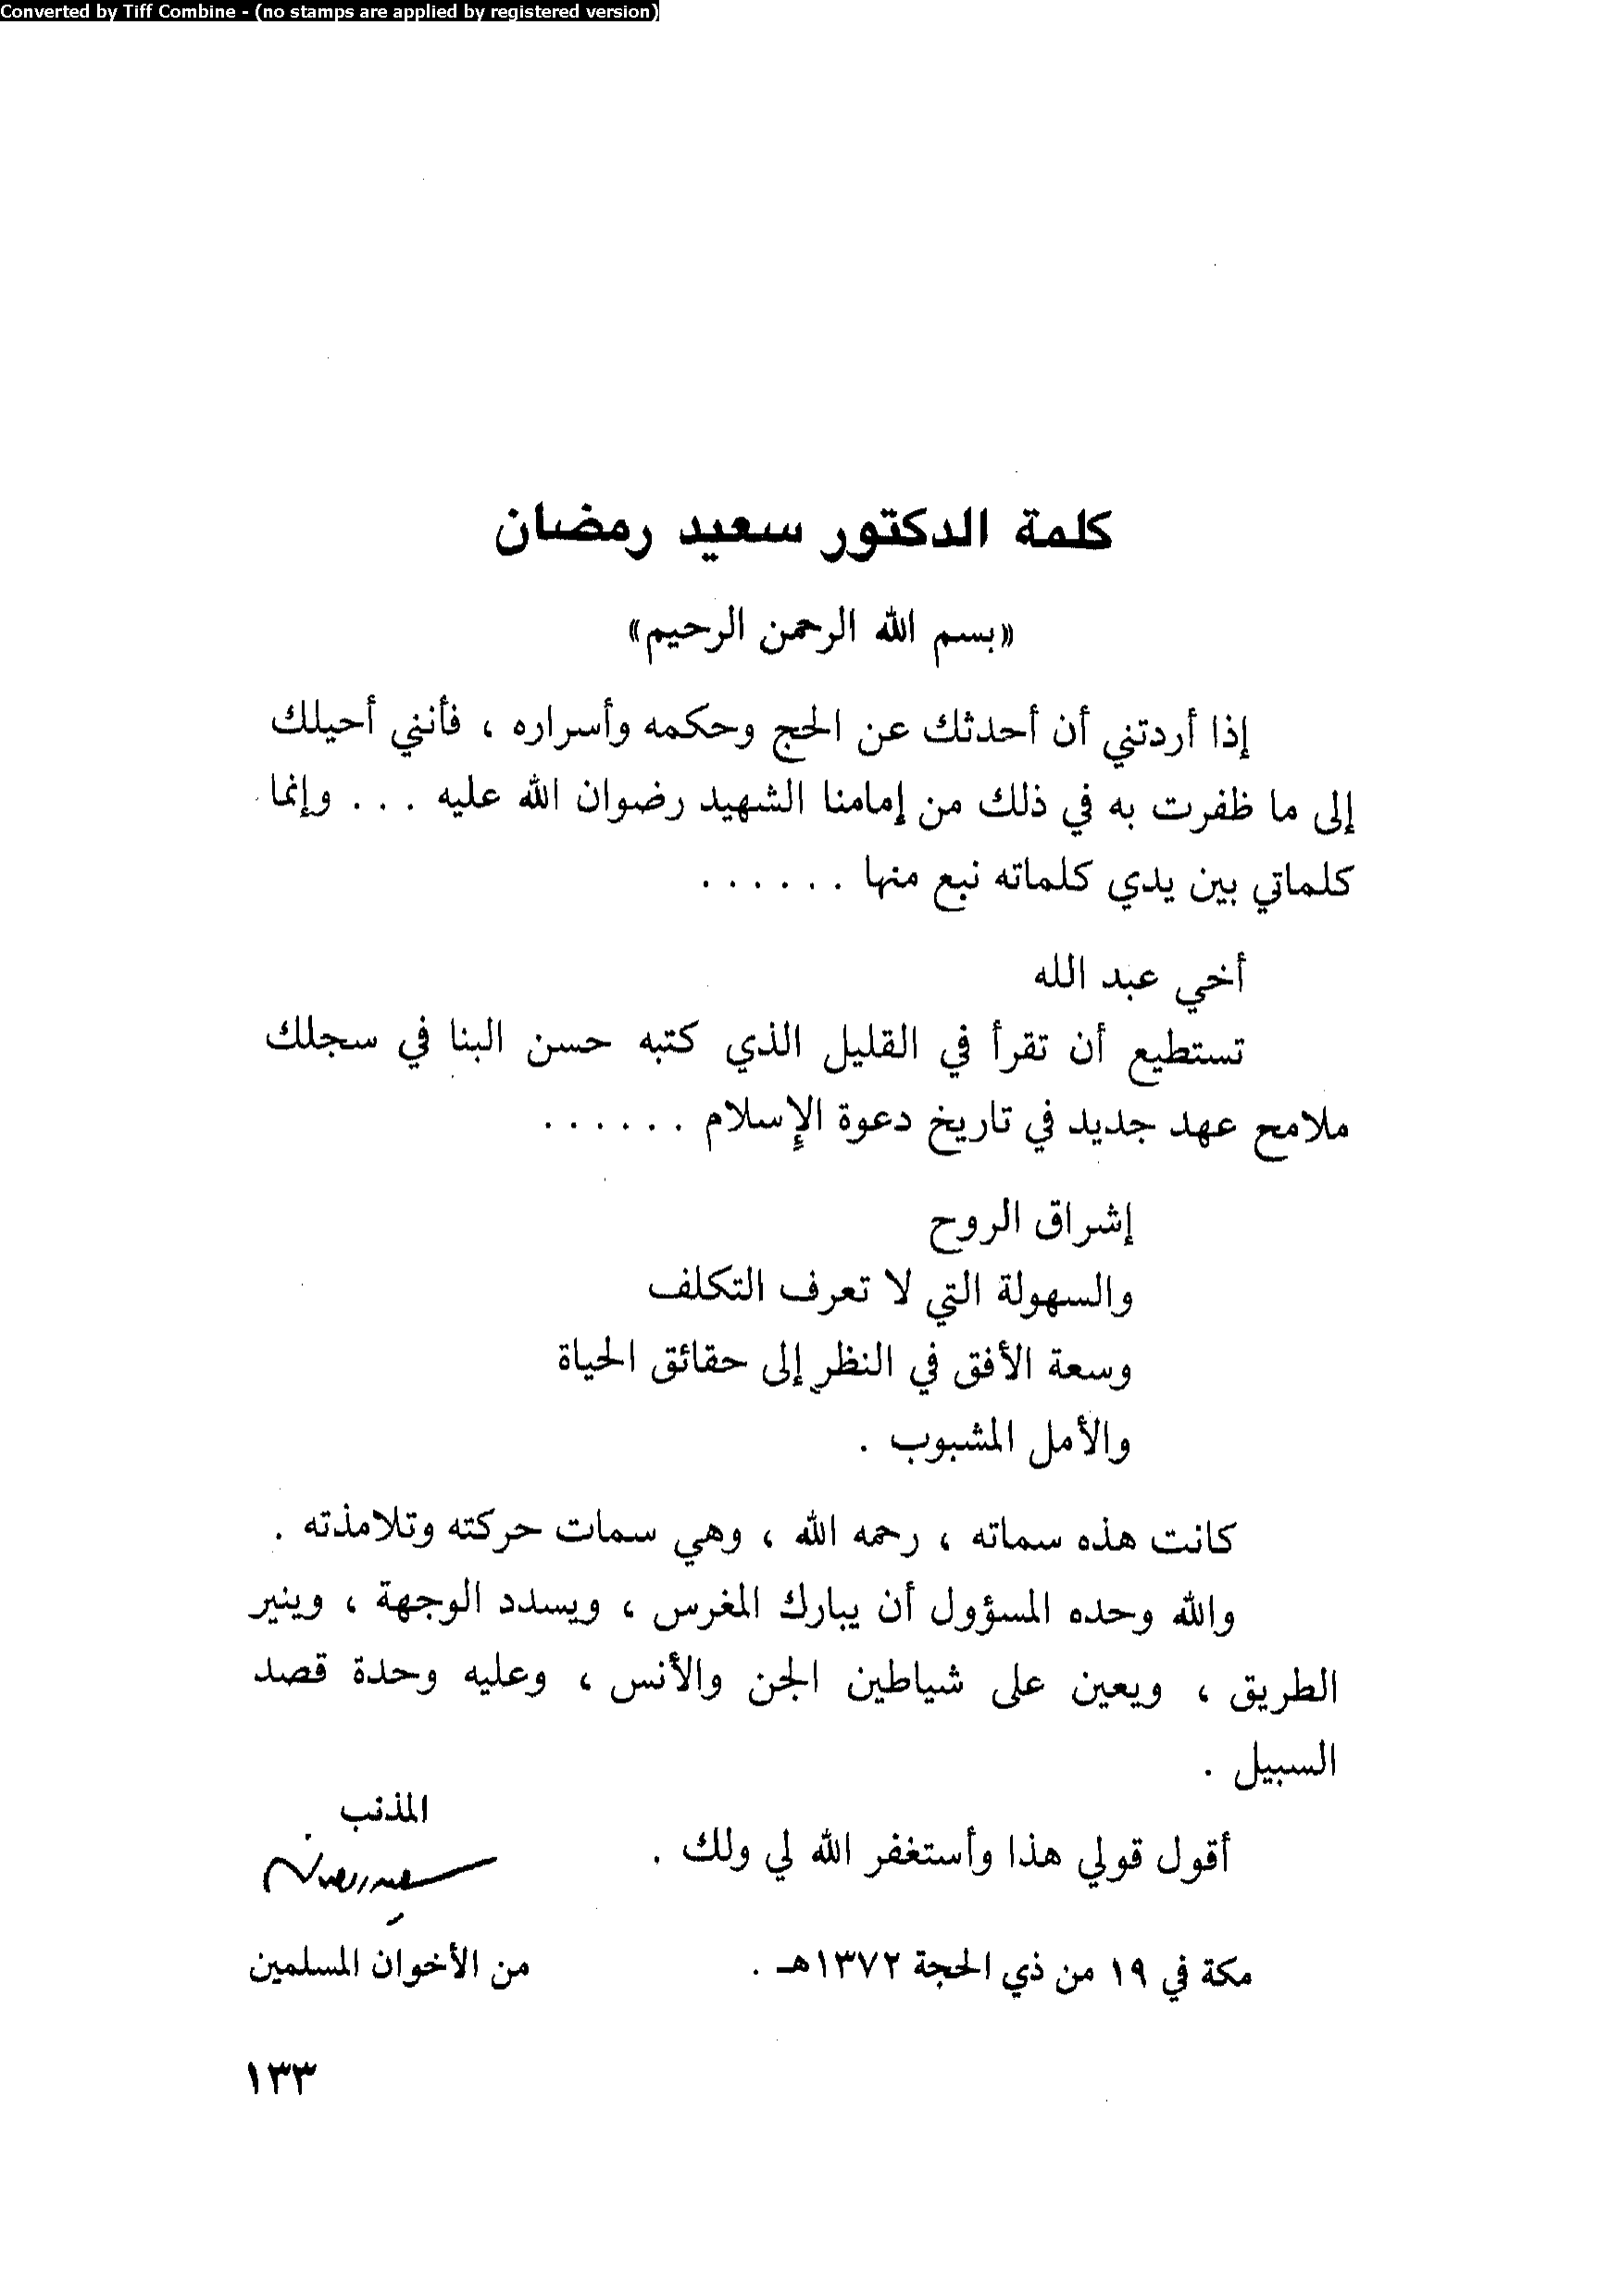 Converted by Tiff Combine - (no stamps are applied by registered version)
كلمة الدكتور سعيد رمضان
«بسم الله الرحمن الرحيم»
إذا أردتني أن أحدثك عن الحج وحكمه وأسراره ، فأنني أحيلك
إلى ما ظفرت به في ذلك من إمامنا الشهيد رضوان الله عليه . . . وإنما
كلماتي بين يدي كلماته نبع منها . . . . . .
أخي عبد الله
تستطيع أن تقرأ في القليل الذي كتبه حسن البنا في سجلك
ملامح عهد جديد في تاريخ دعوة الإسلام . . . . . .
إشراق الروح
والسهولة التي لا تعرف التكلف
وسعة الأفق في النظر إلى حقائق الحياة
والأمل المشبوب .
كانت هذه سماته ، رحمه الله ، وهي سمات حركته وتلامذته .
والله وحده المسؤول أن يبارك المغرس ، ويسدد الوجهة ، وينير
الطريق ، ويعين على شياطين الجن والأنس ، وعليه وحدة قصد
السبيل .
المذنب
أقول قولي هذا وأستغفر الله لي ولك .
سعيد رمضان
مكة في ١٩ من ذي الحجة ١٣٧٢هـ .
من الأخوان المسلمين
١٣٣